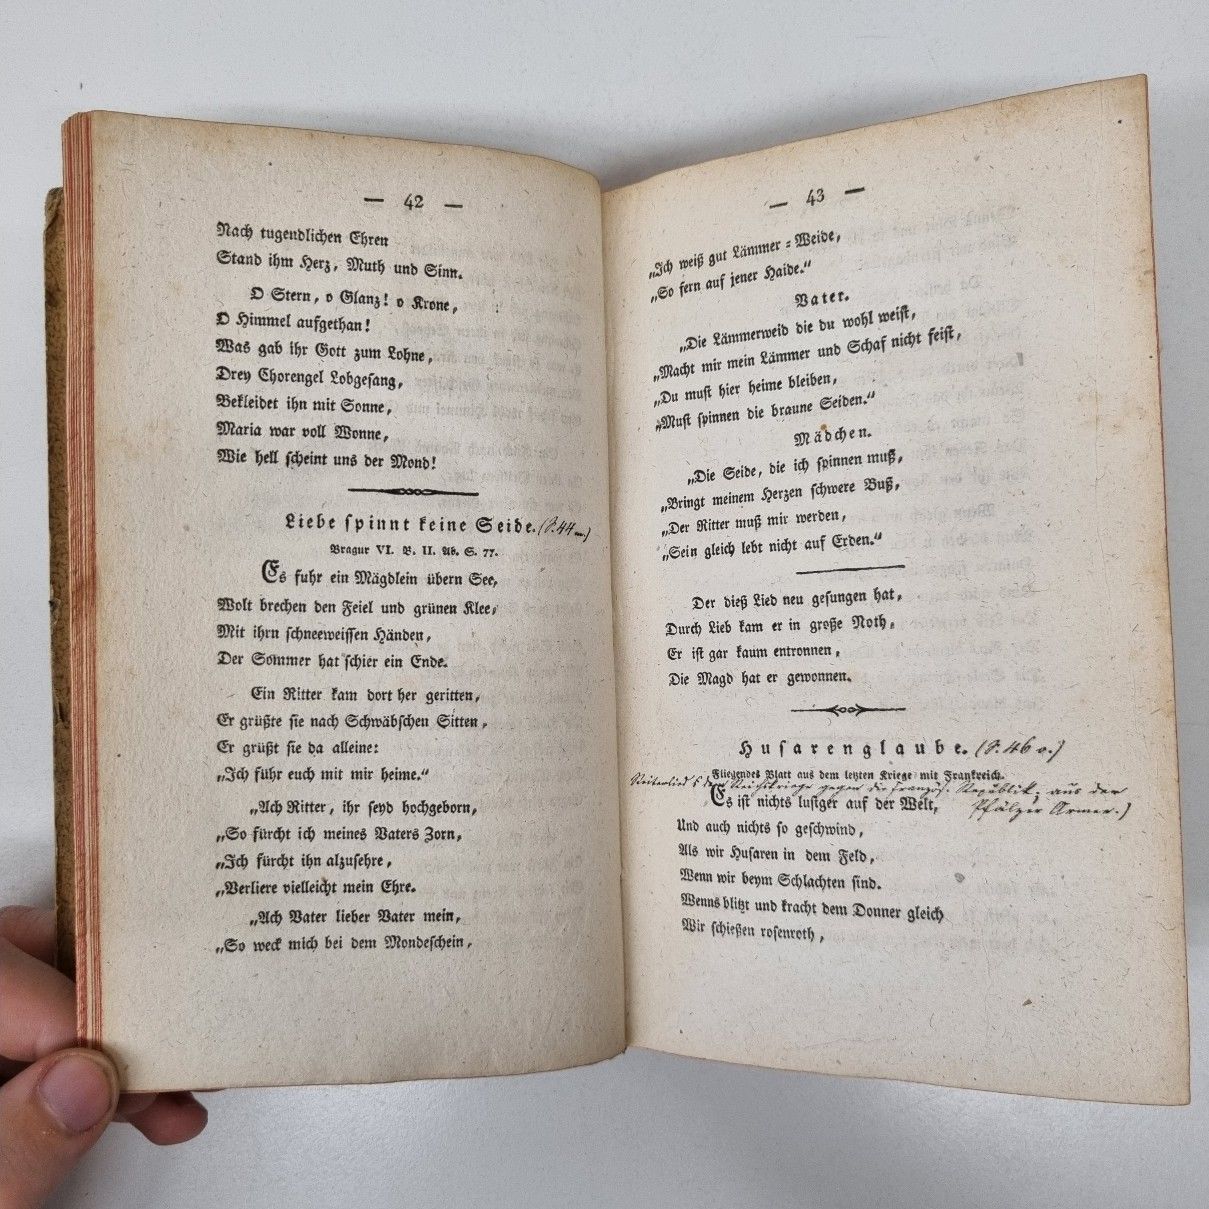 — 42 —
Nach tugendlichen Ehren
Stand ihm Herz, Muth und Sinn.
O Stern, o Glanz! o Krone,
O Himmel aufgethan!
Was gab ihr Gott zum Lohne,
Drey Chorengel Lobgesang,
Bekleidet ihn mit Sonne,
Maria war voll Wonne,
Wie hell scheint uns der Mond!
Liebe spinnt keine Seide. (S. 44
Bragur VI. B. II. Ab. S. 77.
Es fuhr ein Mägdlein übern See,
Wolt brechen den Feiel und grünen Klee,
Mit ihrn schneeweissen Händen,
Der Sommer hat schier ein Ende.
Ein Ritter kam dort her geritten,
Er grüßte sie nach Schwäbschen Sitten,
Er grüßt sie da alleine:
„Ich führ euch mit mir heime.“
„Ach Ritter, ihr seyd hochgeborn,
„So fürcht ich meines Vaters Zorn,
„Ich fürcht ihn alzusehre,
„Verliere vielleicht mein Ehre.
„Ach Vater lieber Vater mein,
„So weck mich bei dem Mondeschein,
— 43 —
„Ich weiß gut Lämmer=Weide,
„So fern auf jener Haide.“
Vater.
„Die Lämmerweid die du wohl weist,
„Macht mir mein Lämmer und Schaf nicht feist,
„Du must hier heime bleiben,
„Must spinnen die braune Seiden.“
Mädchen.
„Die Seide, die ich spinnen muß,
„Bringt meinem Herzen schwere Buß,
„Der Ritter muß mir werden,
„Sein gleich lebt nicht auf Erden.“
Der dieß Lied neu gesungen hat,
Durch Lieb kam er in große Noth,
Er ist gar kaum entronnen,
Die Magd hat er gewonnen.
Husarenglaube. (S. 46 o.)
Fliegendes Blatt aus dem letzten Kriege mit Frankreich.
Reiterlied Reichskriege gegen die französ. Republik, aus der
Pfälzer Armee.)
Es ist nichts lustger auf der Welt,
Und auch nichts so geschwind,
Als wir Husaren in dem Feld,
Wenn wir beym Schlachten sind.
Wenns blitzt und kracht dem Donner gleich
Wir schießen rosenroth,